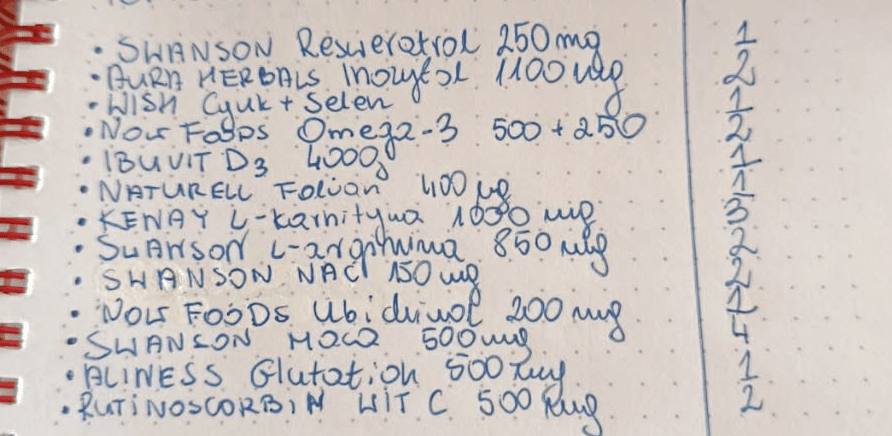 • SWANSON Resweratrol 250 mg 1
• AURA HERBALS Inozytol 1100 mg 2
• WISH Cynk + Selen 1
• NOW FOODS Omega-3 500 + 250 2
• IBUVIT D3 4000j 1
• NATURELL Folian 400 µg 1
• KENAY L-karnityna 1000 mg 3
• SWANSON L-arginina 850 mg 2
• SWANSON NAC 150 mg 2
• NOW FOODS Ubichinol 200 mg
• SWANSON MACA 500 mg 4
• ALINESS Glutation 500 mg 1
• RUTINOSCORBIN WIT C 500 mg 2